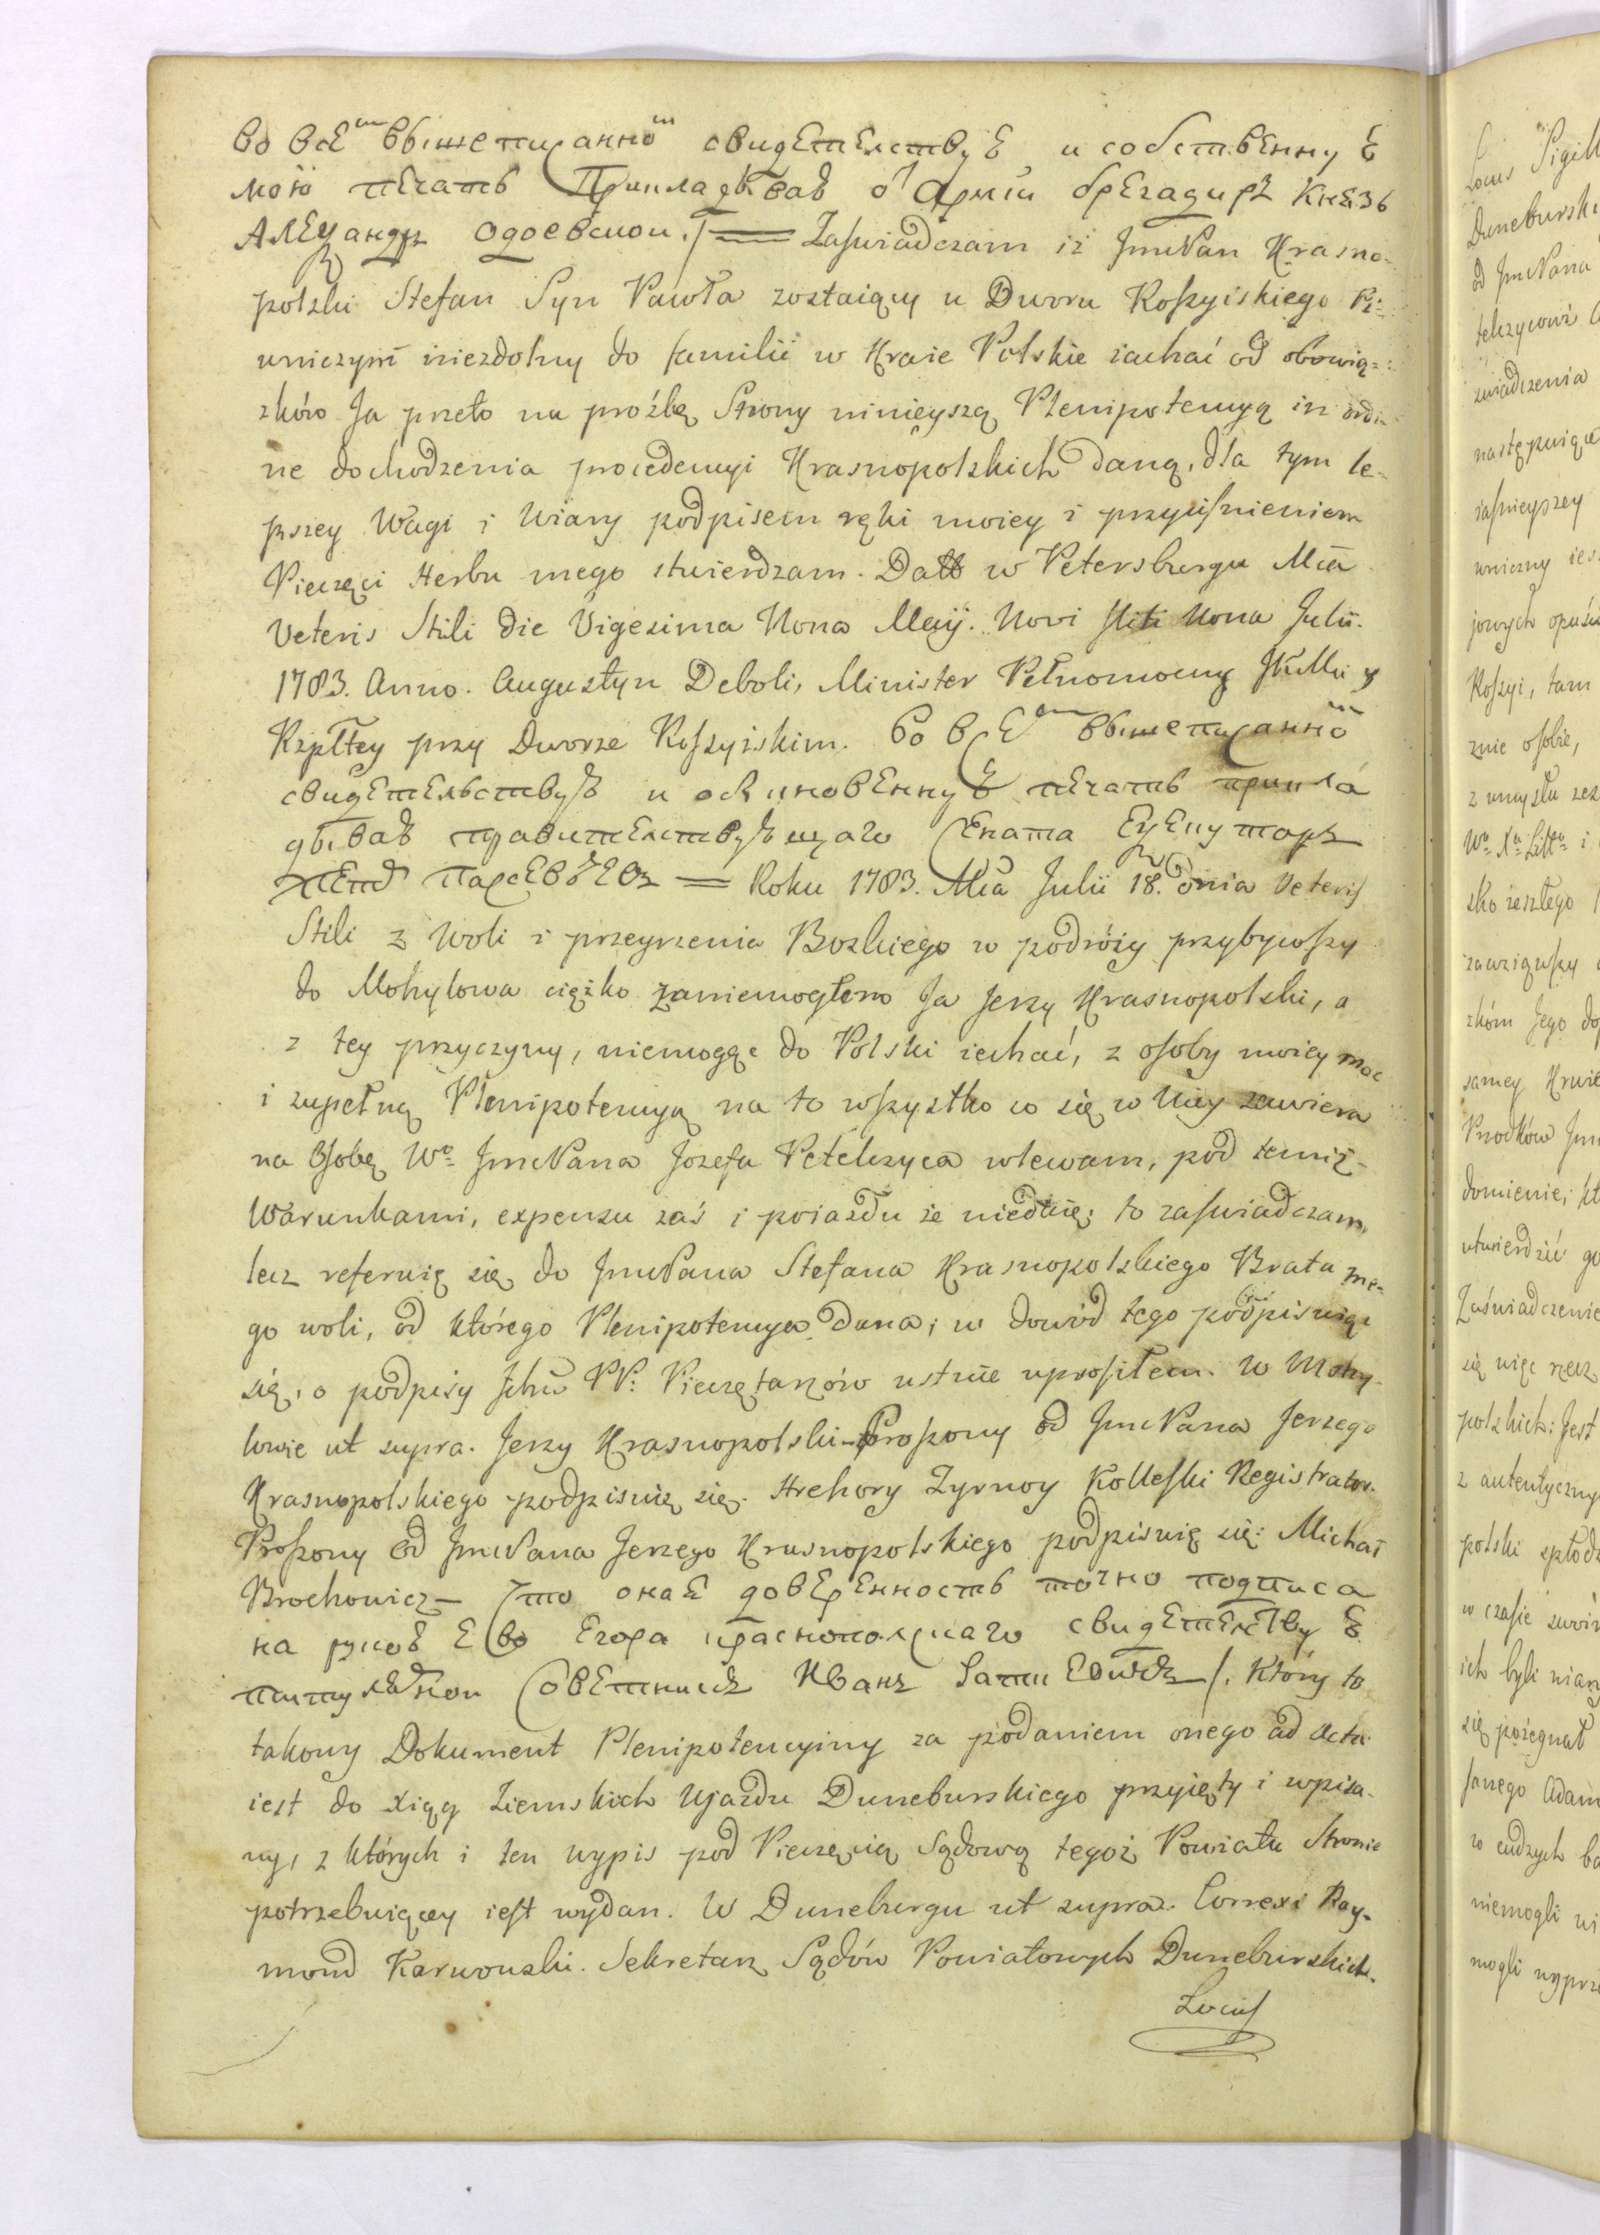 во всемъ вышеписанномъ свидетелствую и собственную
мою печать Прикладывав от Армiи брегадиръ Князь
Александръ Одоевскои./ = Zaświadczam iż JmcPan Krasno-
polski Stefan Syn Pawła zostaiący u Dworu Roſsyiskiego Pi-
wniczym niezdolny do familii w Kraie Polskie iachać od obowią-
zków Ja przeto na proźbę Strony ninieyszą Plenipotencyą in ordi-
ne dochodzenia procedencyi Krasnopolskich daną, dla tym le-
pszey Wagi i Wiary podpisem ręki moiey i przyciśnieniem
Pieczęci Herbu mego stwierdzam. Datt w Petersburgu Mca
Veteris Stili die Vigesima Nona Maij. Novi Stili Nona Julii.
1783. Anno. Augustyn Deboli, Minister Pełnomocny JKMci y
Rzpltey przy Dworze Roſsyiskim. Во всемъ вышеписанномъ
свидетельствую и обыкновенную печать прикла
дывав правителствующаго Сената Екзекуторъ
= Roku 1783. Mca Julii 18. dnia Veteris
Stili z Woli i przeyrzenia Boskiego w podróży przybywſzy
do Mohylowa ciężko zaniemogłem Ja Jerzy Krasnopolski, a
z tey przyczyny, niemogąc do Polski iechać, z oſoby moiey moc
i zupełną Plenipotencyą na to wſzystko co się w Niey zawiera
na Oſobę Wo JmcPana Jozefa Petelczyca wlewam, pod temiż
Warunkami, expensu zaś i poiazdu że niedaię; to zaſwiadczam,
lecz referuię się do JmcPana Stefana Krasnopolskiego Brata me-
go woli, od którego Plenipotencya dana; w dowód tego podpisuiąc
się, o podpisy Jchm PP: Pieczętarzów ustnie uproſiłem. W Mohy-
lowie ut supra. Jerzy Krasnopolski - Proſzony od JmcPana Jerzego
Krasnopolskiego podpisuię się. Hrehory Zyrnoy Kolleſki Registrator.
Proſzony od JmcPana Jerzego Krasnopolskiego podpisuię się: Michał
Brochowicz - Что оная доверенность точно подписа
на рукою Ево Егора Краснополскаго свидетелствую
титулярнои Советникъ Иванъ /. Który to
takowy Dokument Plenipotencyiny za podaniem onego ad Acta
iest do Xiąg Ziemskich Ujazdu Duneburskiego przyięty i wpisa-
ny, z których i ten wypis pod Pieczęcią Sądową tegoż Powiatu Stronie
potrzebuiącey ieſt wydan. W Duneburgu ut supra. Correxi Ray-
mond Karwowski. Sekretarz Sądów Powiatowych Duneburskich.
Locus

Locus Sigill
Duneburski
od JmcPana
telczycowi
zwiadczenia
następuiące
iaſnieyszey
wniczny ies
jowych opuści
Roſsyi, tam
znie oſobie,
z umysłu zez
sko zeszłego
zawziąwſzy
zkóm Jego do
samey Krwie
Przodków Jm
domienie, kt
utwierdzić go
Zaświadczenie
się więc rzecz
polskich: Jest
z autentyczny
polski spłodz
w czaſie
ich byli
się pożegnał
ſanego Adam
w cudzych ba
niemogli
mogli wyprz